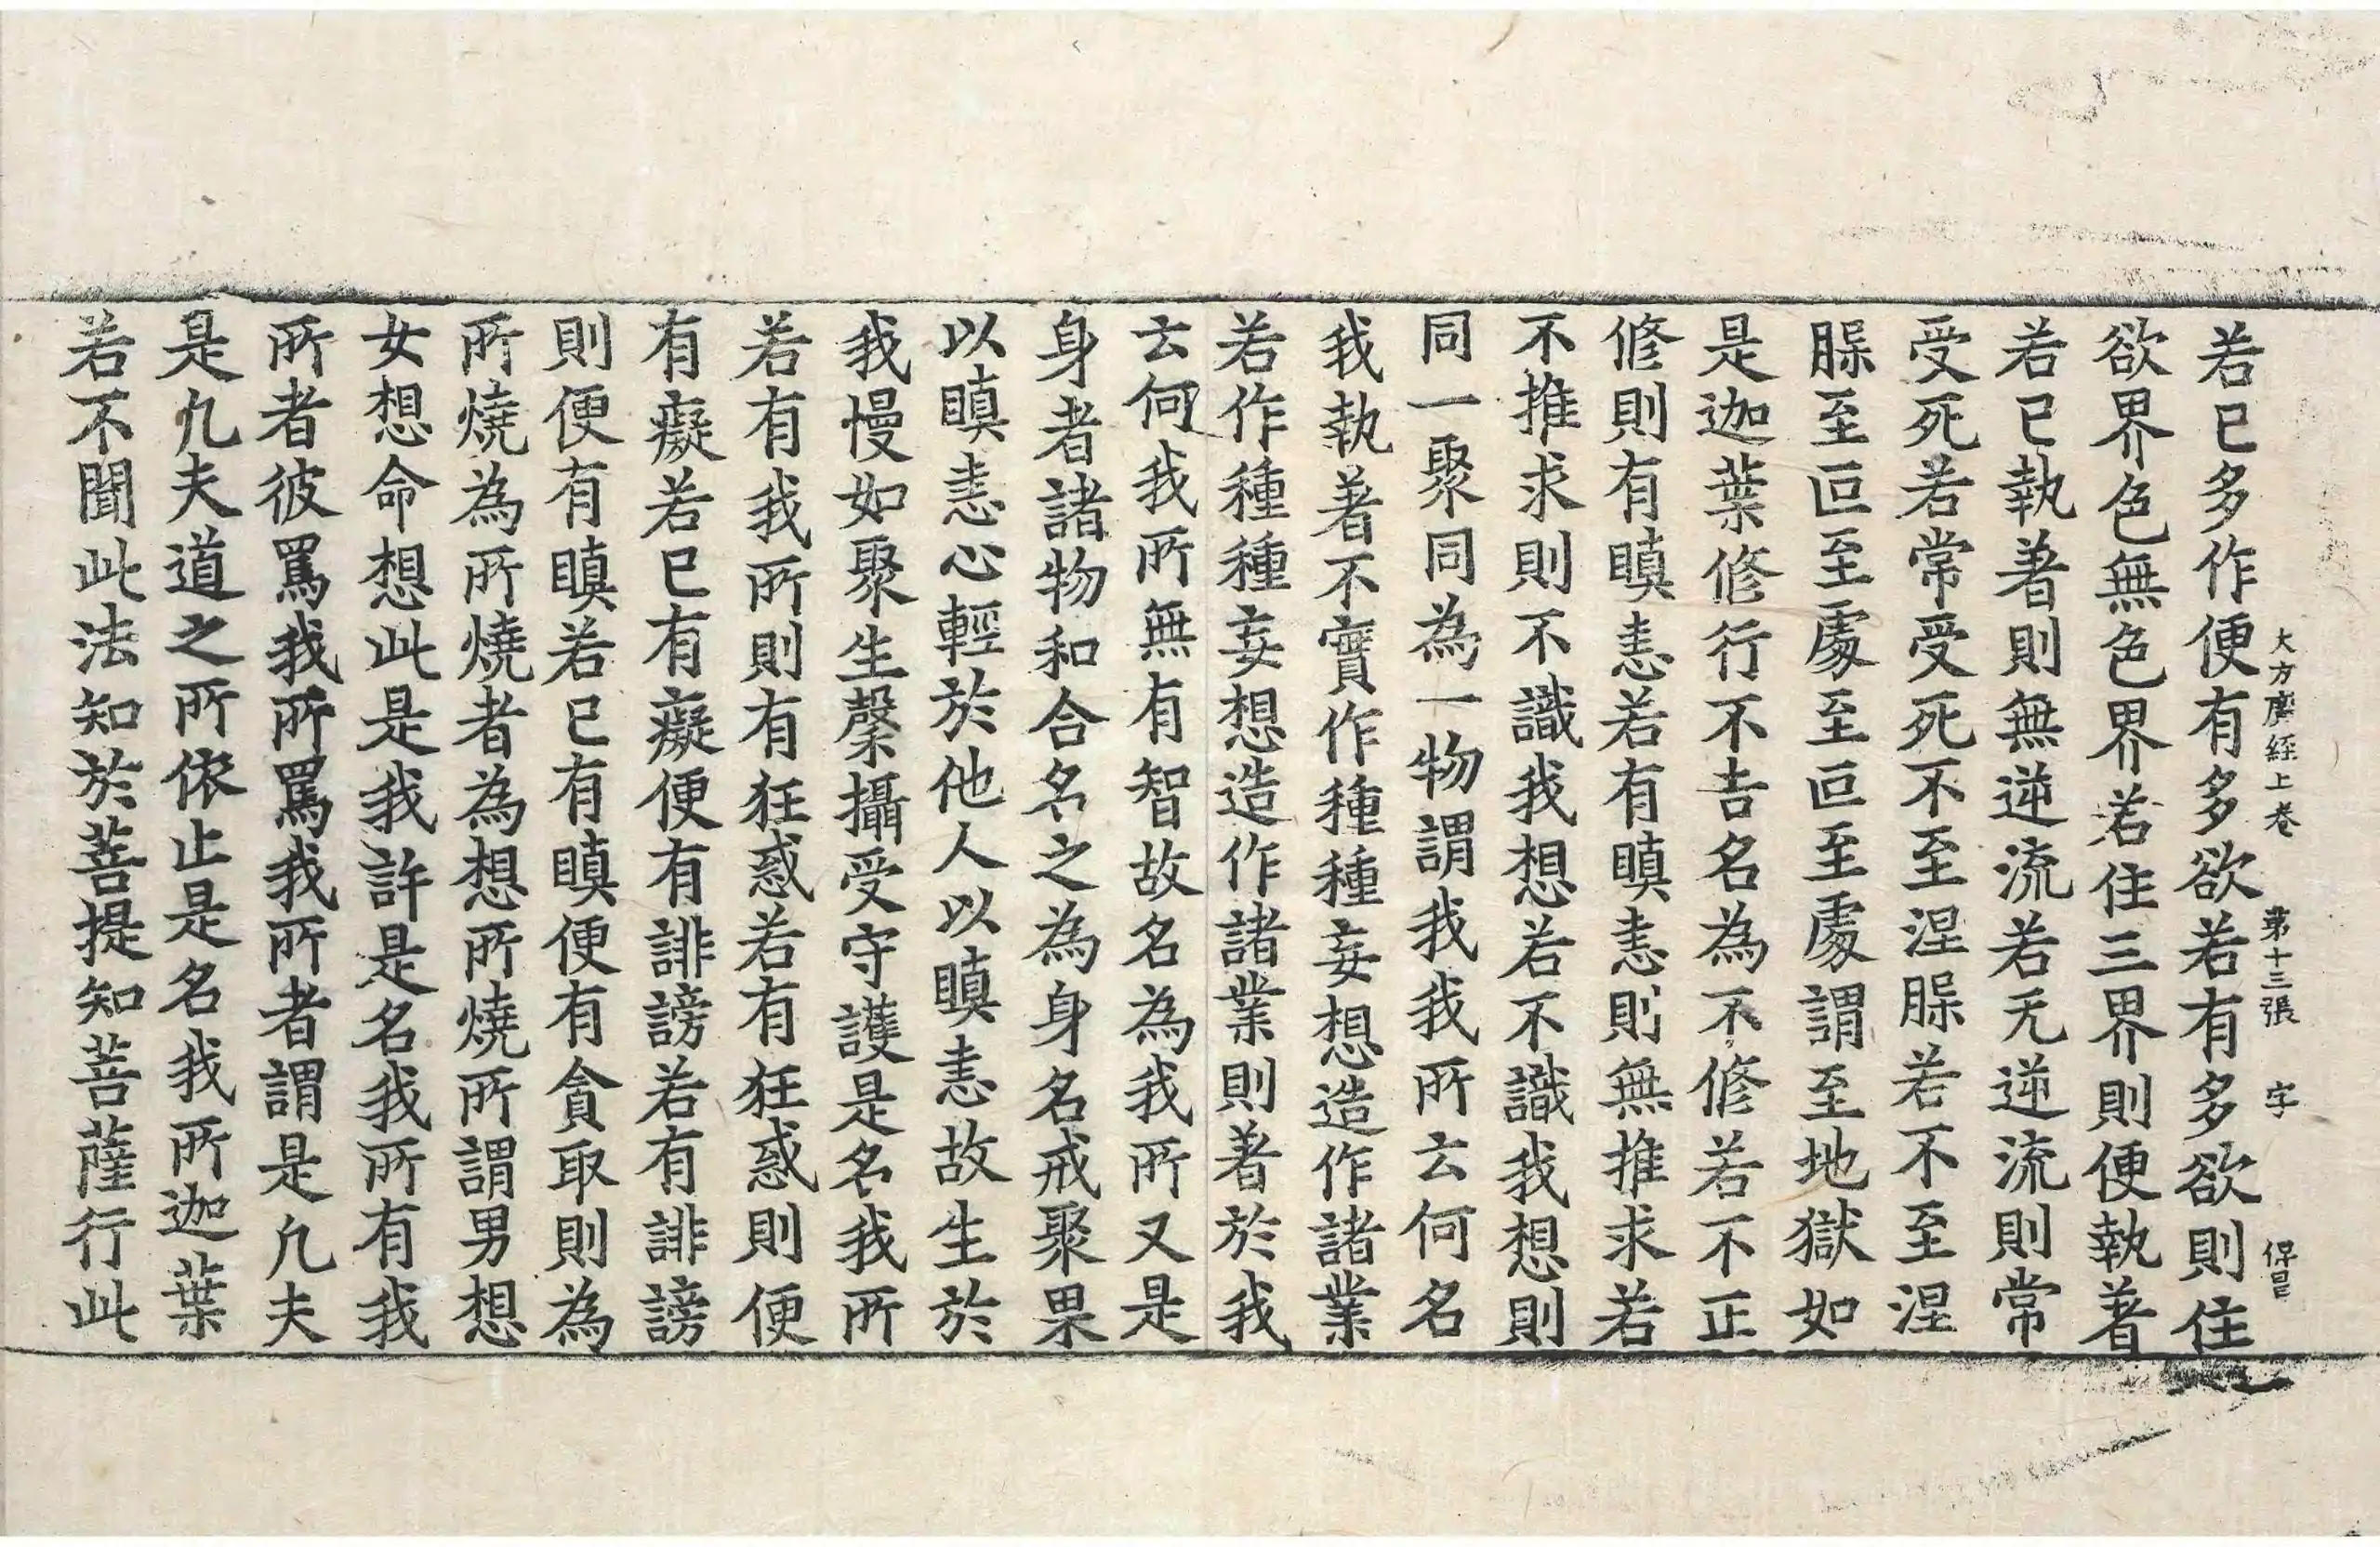 大方廣経上卷 第十三張 字 保昌
若已多作便有多欲若有多欲則住
欲界色無色界若住三界則便執著
若已執著則無逆流若无逆流則常
受死若常受死不至涅槃若不至涅
槃至叵至處至叵至處謂至地獄如
是迦葉修行不吉名為不修若不正
修則有瞋恚若有瞋恚則無推求若
不推求則不識我想若不識我想則
同一聚同為一物謂我我所云何名
我執著不實作種種妄想造作諸業
若作種種妄想造作諸業則著於我
云何我所無有智故名為我所又是
身者諸物和合名之為身名戒聚果
以瞋恚心輕於他人以瞋恚故生於
我慢如聚生槃攝受守護是名我所
若有我所則有狂惑若有狂惑則便
有癡若已有癡便有誹謗若有誹謗
則便有瞋若已有瞋便有貪取則為
所燒為所燒者為想所燒所謂男想
女想命想此是我許是名我所有我
所者彼罵我所罵我所者謂是凡夫
是凡夫道之所依止是名我所迦葉
若不聞此法知於菩提知菩薩行此